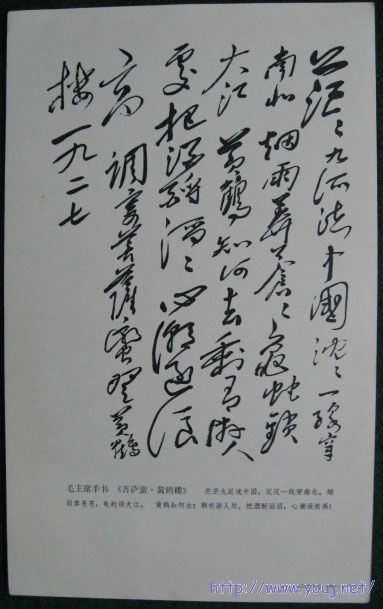 茫〻九派流中國沈〻一線穿
南北烟雨莽蒼〻龜蛇鎖
大江 黃鶴知何去剩有遊人
處把酒酹滔〻心潮逐浪
高 調寄菩薩蠻登黃鶴
樓 一九二七
毛主席手书 《菩萨蛮·黄鹤楼》 茫茫九派流中国，沉沉一线穿南北。烟
雨莽苍苍，龟蛇锁大江。 黄鹤知何去？剩有游人处。把酒酹滔滔，心潮逐浪高！
http://www.youj.net/